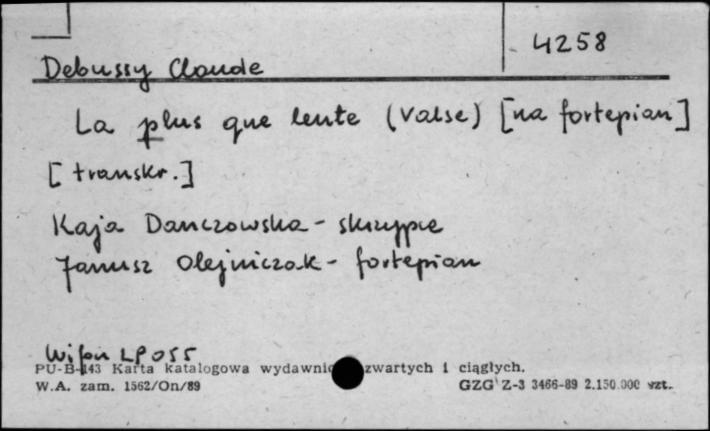 4258
Debussy Claude
La plus que lente (Valse) [na fortepian]
[transkr.]
Kaja Danczowska - skrzypce
Janusz Olejniczak - fortepian
Wifon LP 055
PU-B-143 Karta katalogowa wydawnic zwartych i ciągłych.
W.A. zam. 1562/On/89 GZG Z-3 3466-89 2.150.000 szt.